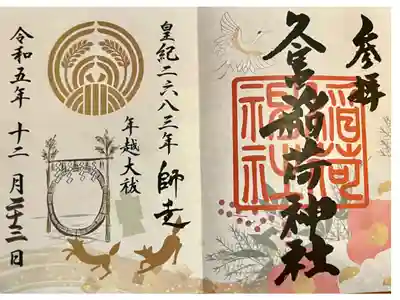 参拝
久富稲荷神社
稲荷
神社
皇紀二六八三年 師走
年越大祓
令和五年 十二月二十三日